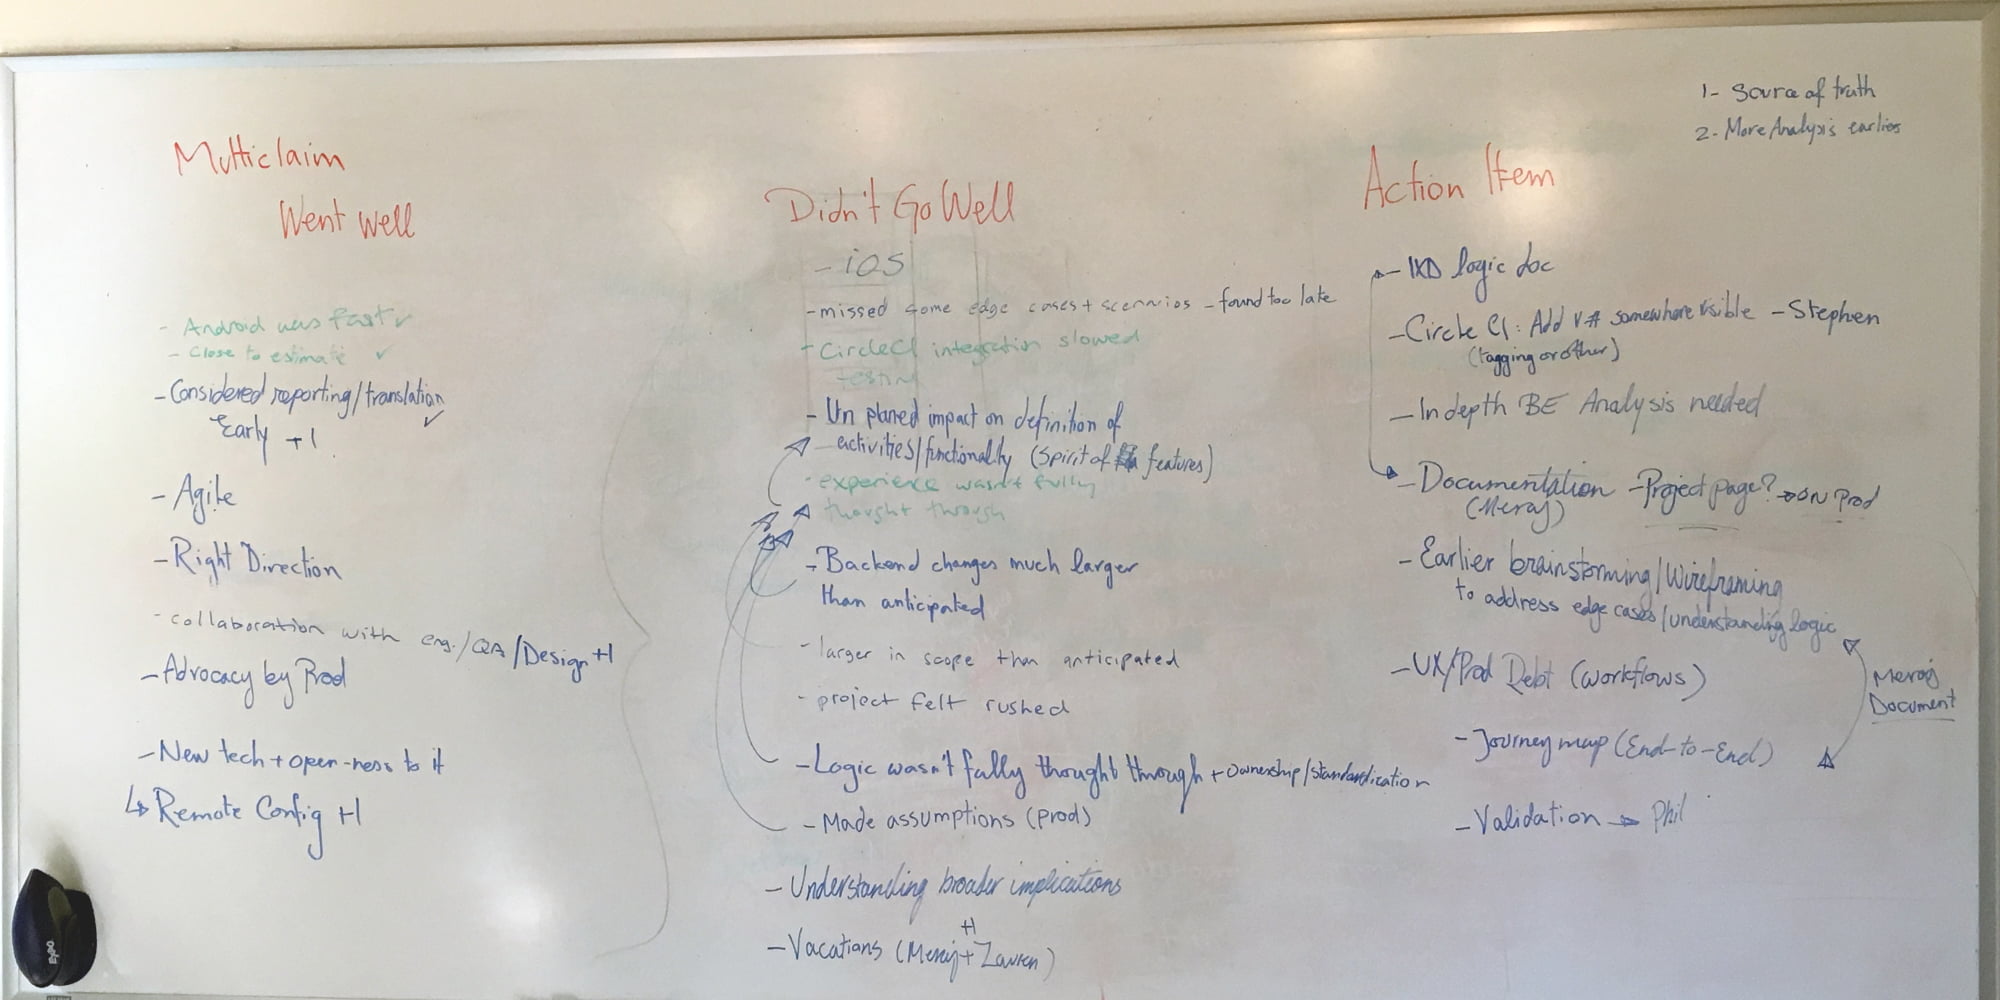 1- Source of truth
2- More Analysis earlier
Multiclaim
Went Well
- Android was fast ✓
- Close to estimate ✓
- Considered reporting/translation ✓
Early +1
- Agile
- Right Direction
- collaboration with eng./QA/Design +1
- Advocacy by Prod
- New tech + open-ness to it
↳ Remote Config +1
Didn't Go Well
- iOS
- missed some edge cases + scenarios - found too late
- CircleCI integration slowed
testing
- Un planed impact on definition of
activities/functionality (Spirit of features)
- experience wasn't fully
thought through
- Backend changes much larger
than anticipated
- larger in scope than anticipated
- project felt rushed
- Logic wasn't fully thought through + ownership/standardization
- Made assumptions (prod)
- Understanding broader implications
+1
- Vacations (Meraj + Lauren)
Action Item
- IXD logic doc
- Circle CI: Add V# somewhere visible - Stephen
(tagging or other)
- In depth BE Analysis needed
- Documentation - Project page? → on Prod
(Meraj)
- Earlier brainstorming/Wireframing
to address edge cases/understanding logic
- UX/Prod Debt (workflows)
Meraj's
Document
- Journey map (End-to-End)
- Validation → Phil
EXPO